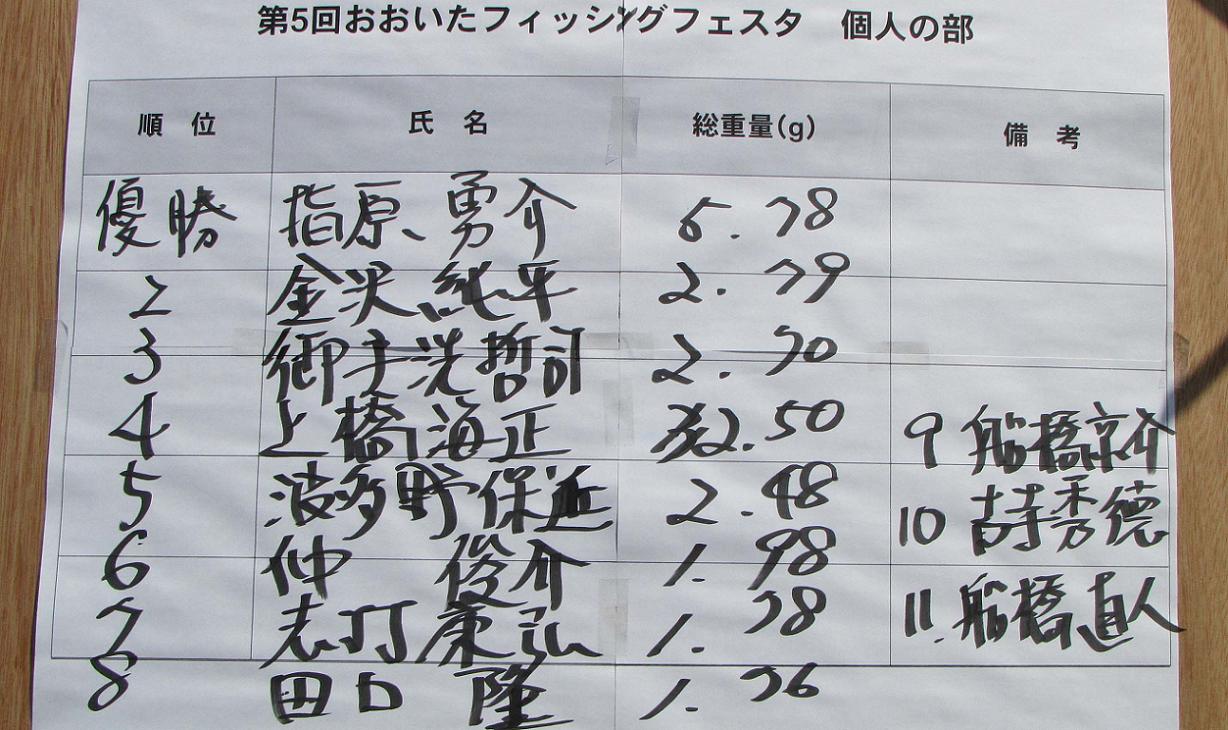 第5回おおいたフィッシングフェスタ 個人の部
順 位 氏 名 総重量(g) 備 考
優勝 指原、勇介 5.78
2 金沢、純平 2.79
3 御手洗哲司 2.70
4 上橋海正 2.50
9 船橋京介
5 波多野保延 2.48
10 吉持秀德
6 仲 俊介 1.98
7 志打康弘 1.78
11.船橋、直人
8 田口 隆 1.76